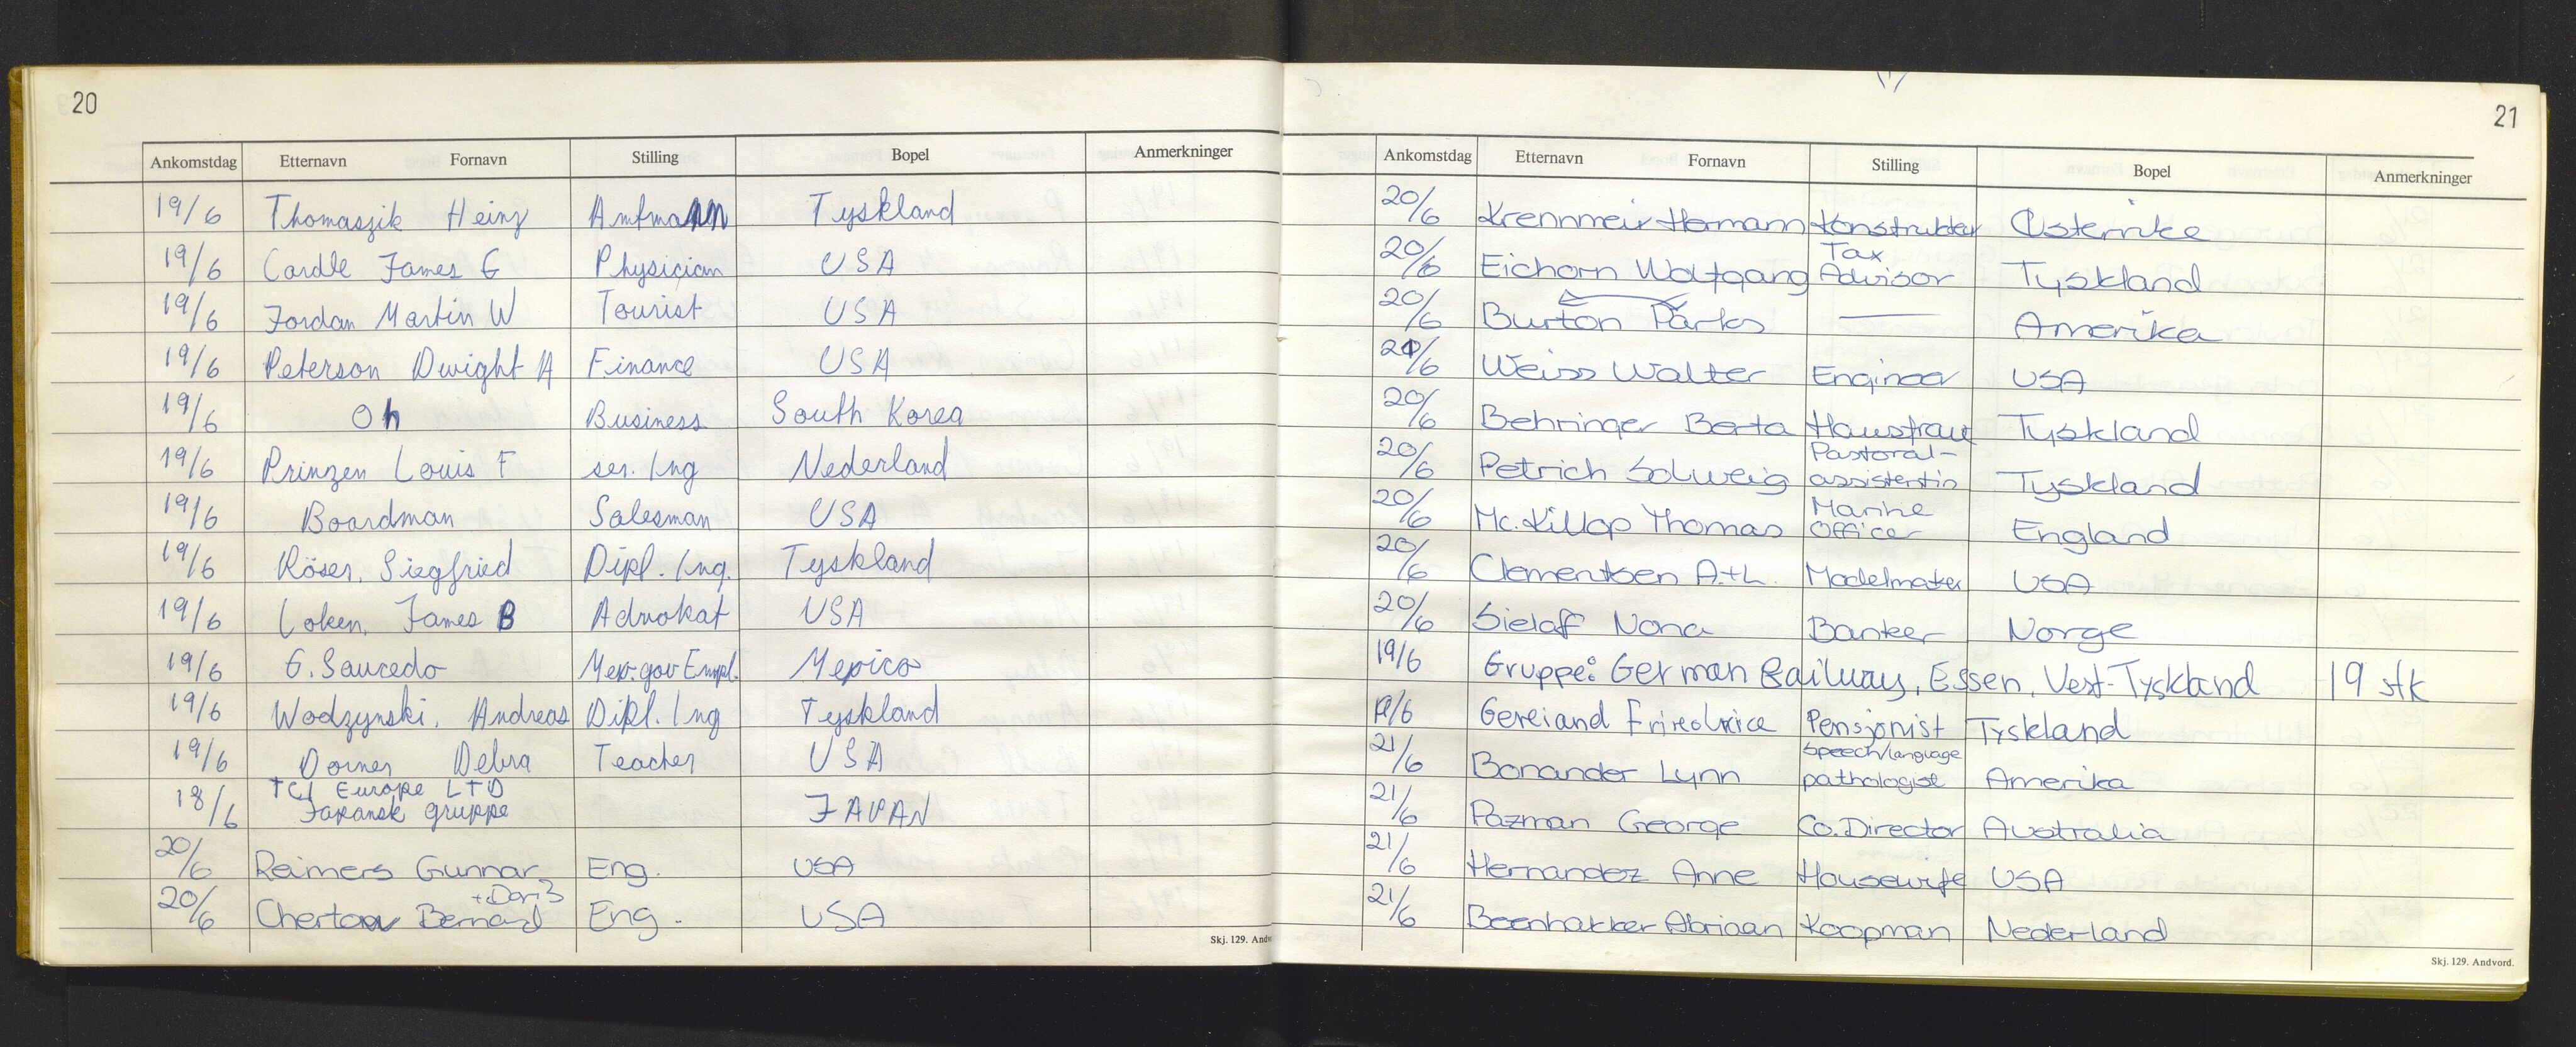 20
Ankomstdag Etternavn Fornavn Stilling Bopel Anmerkninger
19/6 Thomaszik Heinz Amtmann Tyskland
19/6 Cardle James G Physician USA
19/6 Jordan Martin W Tourist USA
19/6 Peterson Dwight A Finance USA
19/6 Oh Business South Korea
19/6 Prinzen Louis F ser. Ing Nederland
19/6 Boardman Salesman USA
19/6 Röser, Siegfried Dipl. Ing. Tyskland
19/6 Loken, James B Advokat USA
19/6 G. Saucedo Mex. gov Empl. Mexico
19/6 Wodzynski, Andreas Dipl. Ing Tyskland
19/6 Dorner Debra Teacher USA
TCI Europe LTD
18/6 Japansk gruppe JAPAN
20/6 Reimers Gunnar Eng. USA
+Doris
20/6 Chertow Bernard Eng. USA
Skj. 129. Andv
21
Ankomstdag Etternavn Fornavn Stilling Bopel Anmerkninger
20/6 Krennmeir Hermann Konstrukter Østerrike
Tax
20/6 Eichorn Wolfgang Advisor Tyskland
20/6 Burton Parks — Amerika
20/6 Weiss Walter Engineer USA
20/6 Behringer Berta Hausfrau Tyskland
Pastoral-
20/6 Petrich Solweig assistentin Tyskland
Marine
20/6 Mc.Killop Thomas Officer England
20/6 Clementsen A.+L. Modelmaker USA
20/6 Sielaf Nona Banker Norge
19/6 Gruppe: German Railway, Essen, Vest-Tyskland 19 stk
19/6 Pensjonist Tyskland
Speech/language
21/6 Bonander Lynn pathologist Amerika
21/6 Pazman George Co. Director Australia
21/6 Hernandez Anne Housewife USA
21/6 Beenhakker Abriaan Koopman Nederland
Skj. 129. Andvord.